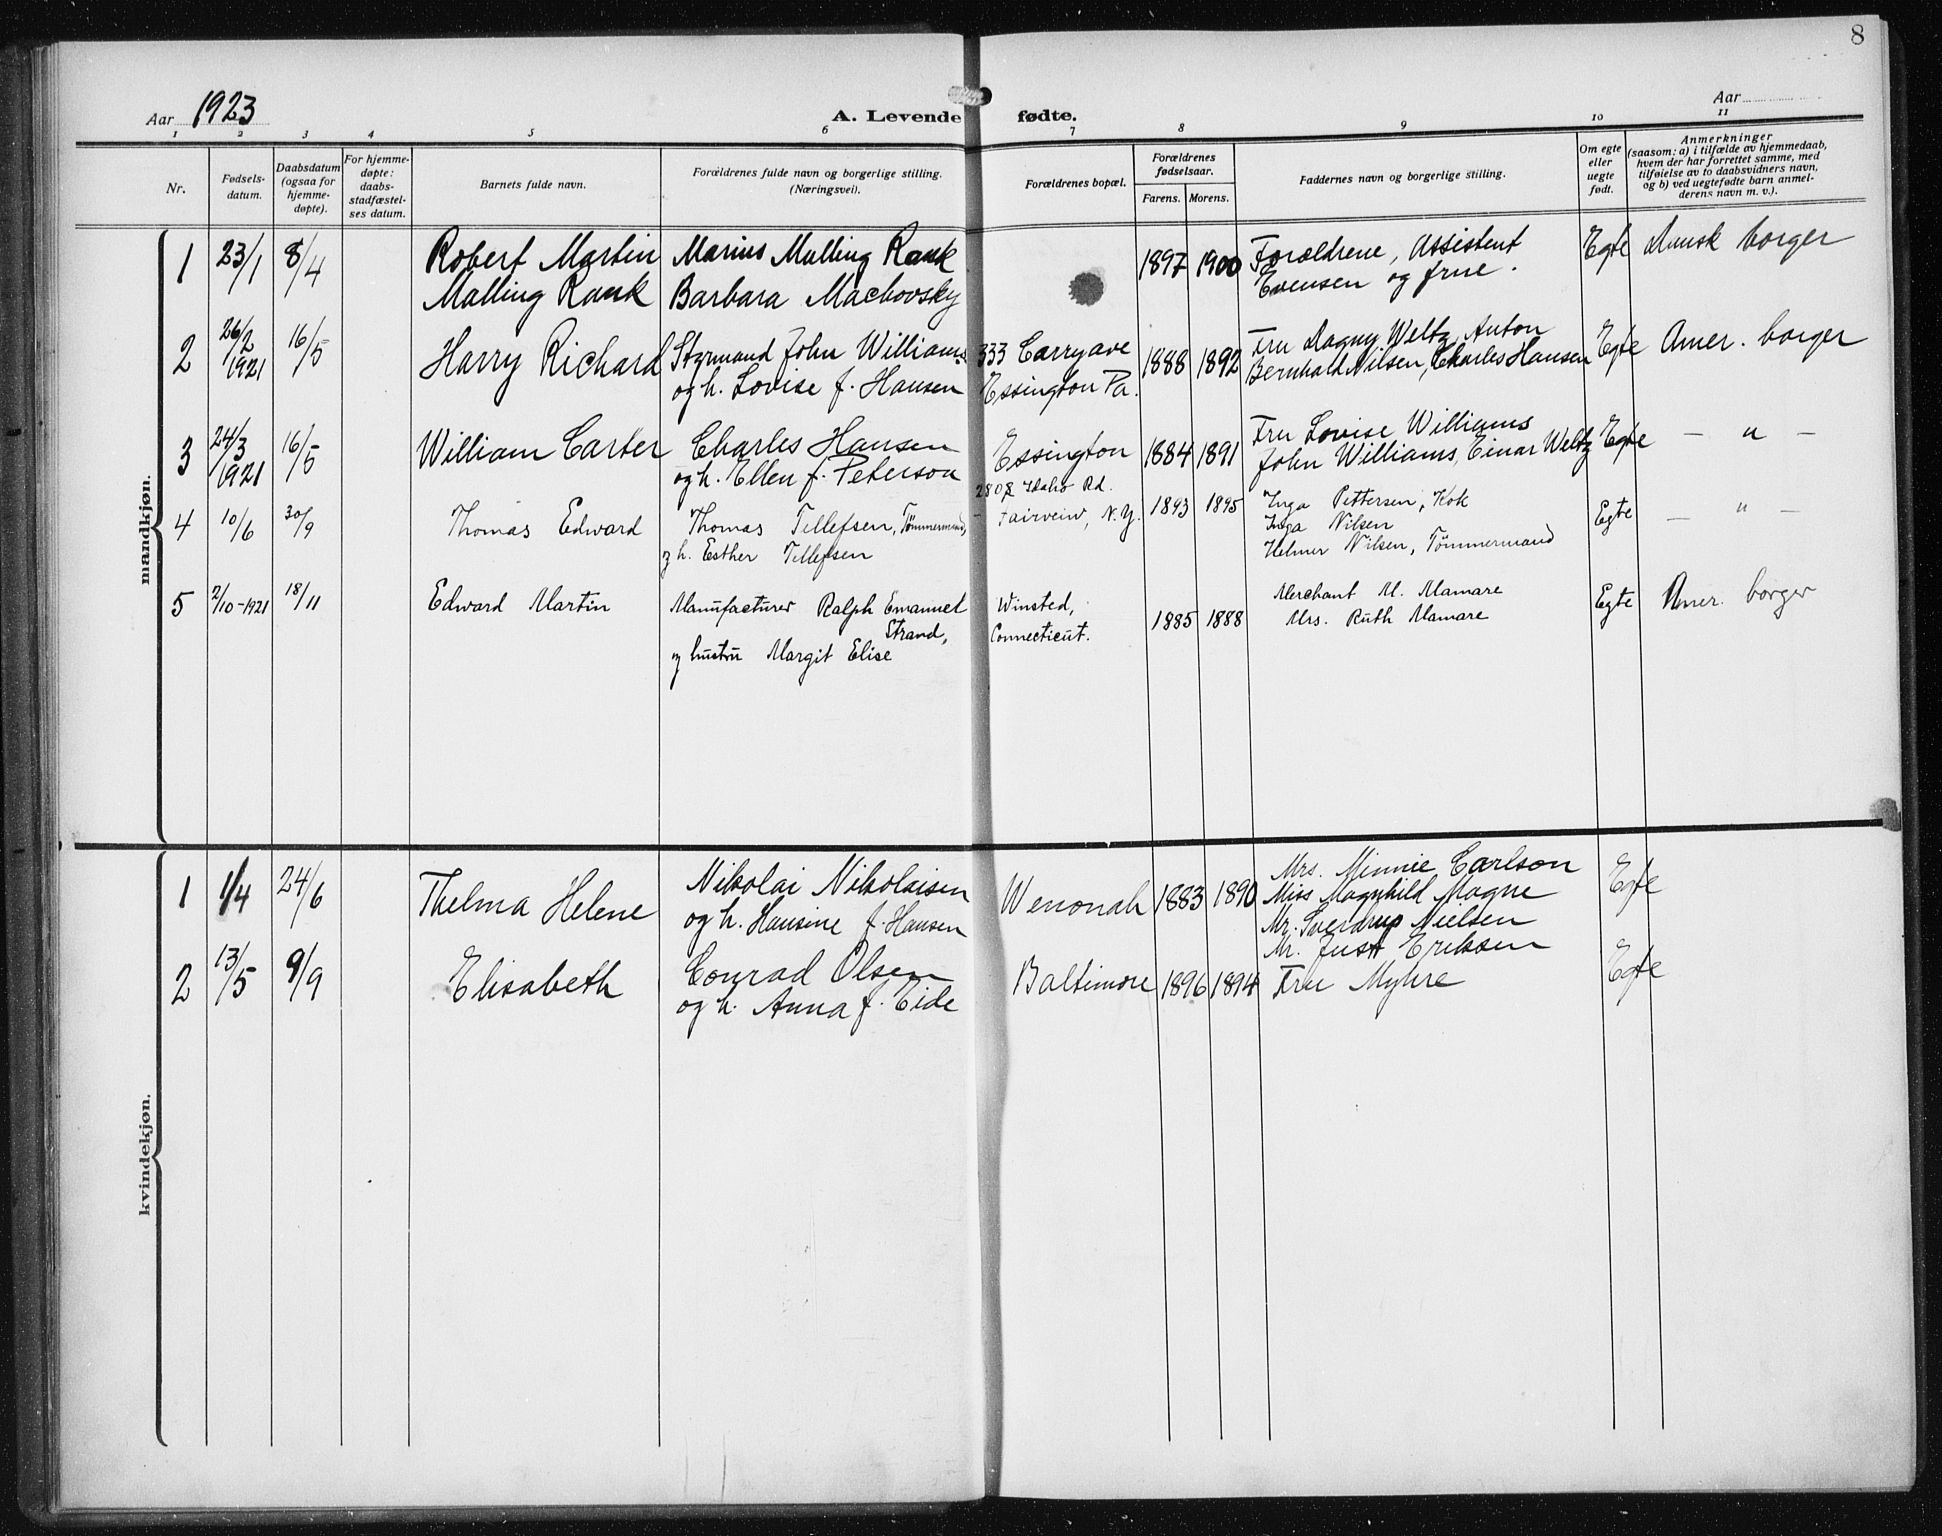 8
Aar 1923
A. Levende fødte.
Aar
1 2 3 4 5 6 7 8 9 10 11
Nr.
Fødsels-
datum.
Daabsdatum
(ogsaa for
hjemme-
døpte).
For hjemme-
døpte:
daabs-
stadfæstel-
ses datum.
Barnets fulde navn.
Forældrenes fulde navn og borgerlige stilling.
(Næringsvei).
Forældrenes bopæl.
Forældrenes
fødselsaar.
Farens. Morens.
Faddernes navn og borgerlige stilling.
Om egte
eller
uegte
født.
Anmerkninger
(saasom: a) i tilfælde av hjemmedaab,
hvem der har forrettet samme, med
tilføielse av to daabsvidners navn,
og b) ved uegtefødte barn anmel-
derens navn m. v.).
mandkjøn.
1 23/1 8/4
Robert Martin
Malling Rank
Marius Malling Rank
Barbara Machovsky
1897 1900
Forældrene, Assistent
Evensen og frue.
Egte
Dansk borger
2 26/2 1921 16/5
Harry Richard
Styrmand John Williams
og h. Lovise f. Hansen
333 Carryave
Essington Pa.
1888 1892
Fru Dagny Weltz, Anton
Bernhald Nilsen, Charles Hansen
Egte
Amer. borger
3 24/3 1921 16/5
William Carter
Charles Hansen
og h. Ellen f. Peterson
Essington
1884 1891
Fru Lovise Williams
John Williams, Einar Weltz
Egte
— " —
4 10/6 30/9
Thomas Edward
Thomas Tellefsen, Tømmermand,
og h. Esther Tellefsen
2808 Idaho Rd.
Fairveiw, N.Y.
1893 1895
Inga Pettersen, Kok
Inga Nilsen
Helmer Nilsen, Tømmermand
Egte
— " —
5 2/10-1921 18/11
Edward Martin
Manufacturer Ralph Emanuel
Strand,
og hustru Margit Elise
Winsted,
Connecticut.
1885 1888
Merchant M. Mamare
Mrs. Ruth Mamare
Egte
Amer. borger
kvindekjøn.
1 1/4 24/6
Thelma Helene
Nikolai Nikolaisen
og h. Hansine f. Hansen
Wenonah
1883 1890
Mrs. Minnie Carlson
Miss Magnhild Magne
Mr. Sverdrup Nielsen
Mr. Just Eriksen
Egte
2 13/5 9/9
Elisabeth
Conrad Olsen
og h. Anna f. Eide
Baltimore
1896 1894
Fru Myhre
Egte